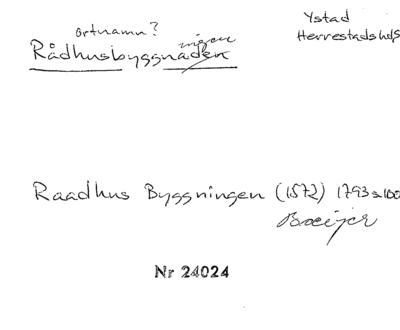 Ystad
Herrestads hds
ortnamn?
ningen
Rådhusbyggnaden
Raadhus Byggningen (1572) 1793 s 100
Boeijer
Nr 24024